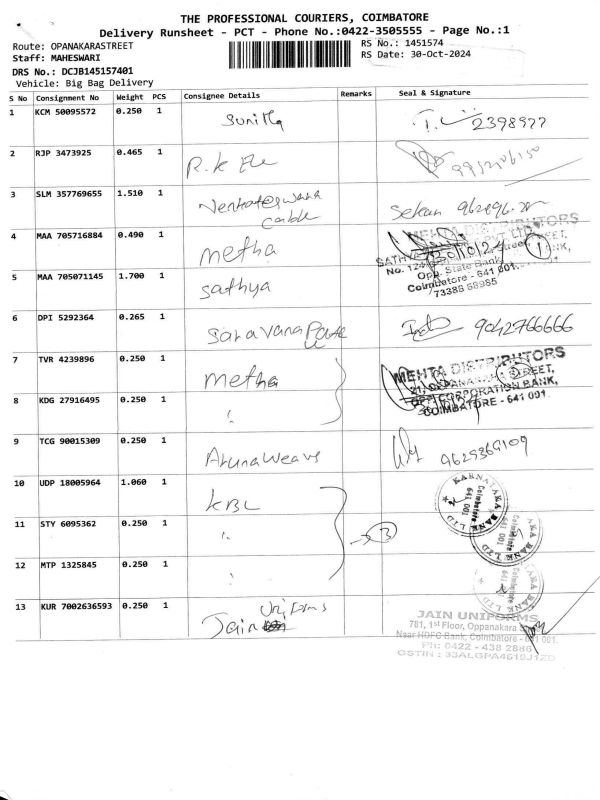 THE PROFESSIONAL COURIERS, COIMBATORE
Delivery Runsheet - PCT - Phone No.:0422-3505555 - Page No.:1
Route: OPANAKARASTREET
RS No.: 1451574
Staff: MAHESWARI
RS Date: 30-Oct-2024
DRS No.: DCJB145157401
Vehicle: Big Bag Delivery
S No Consignment No Weight PCS Consignee Details Remarks Seal & Signature
1 KCM 50095572 0.250 1 Sunitha 2398977
2 RJP 3473925 0.465 1 R.k
3 SLM 357769655 1.510 1
4 MAA 705716884 0.490 1 metha
MEHTA DISTRIBUTORS
30/10/24 1
Opp. State Bank
Coimbatore - 641 001.
73388 68985
5 MAA 705071145 1.700 1 Sathya
6 DPI 5292364 0.265 1 Saravana 9042766666
7 TVR 4239896 0.250 1 metha
MEHTA DISTRIBUTORS
OPP. CORPORATION BANK,
COIMBATORE - 641 001.
8 KDG 27916495 0.250 1 "
9 TCG 90015309 0.250 1 Aruna Weavs 9629369109
10 UDP 18005964 1.060 1 KBL
KARNATAKA BANK LTD
Coimbatore
641 001
11 STY 6095362 0.250 1 " 3
KARNATAKA BANK LTD
Coimbatore
641 001
12 MTP 1325845 0.250 1 "
13 KUR 7002636593 0.250 1 Jain Uniforms
JAIN UNIFORMS
781, 1st Floor, Oppanakara
Near HDFC Bank, Coimbatore - 641 001.
Ph: 0422 - 438 2886
GSTIN : 33ALGPA4619J1ZD